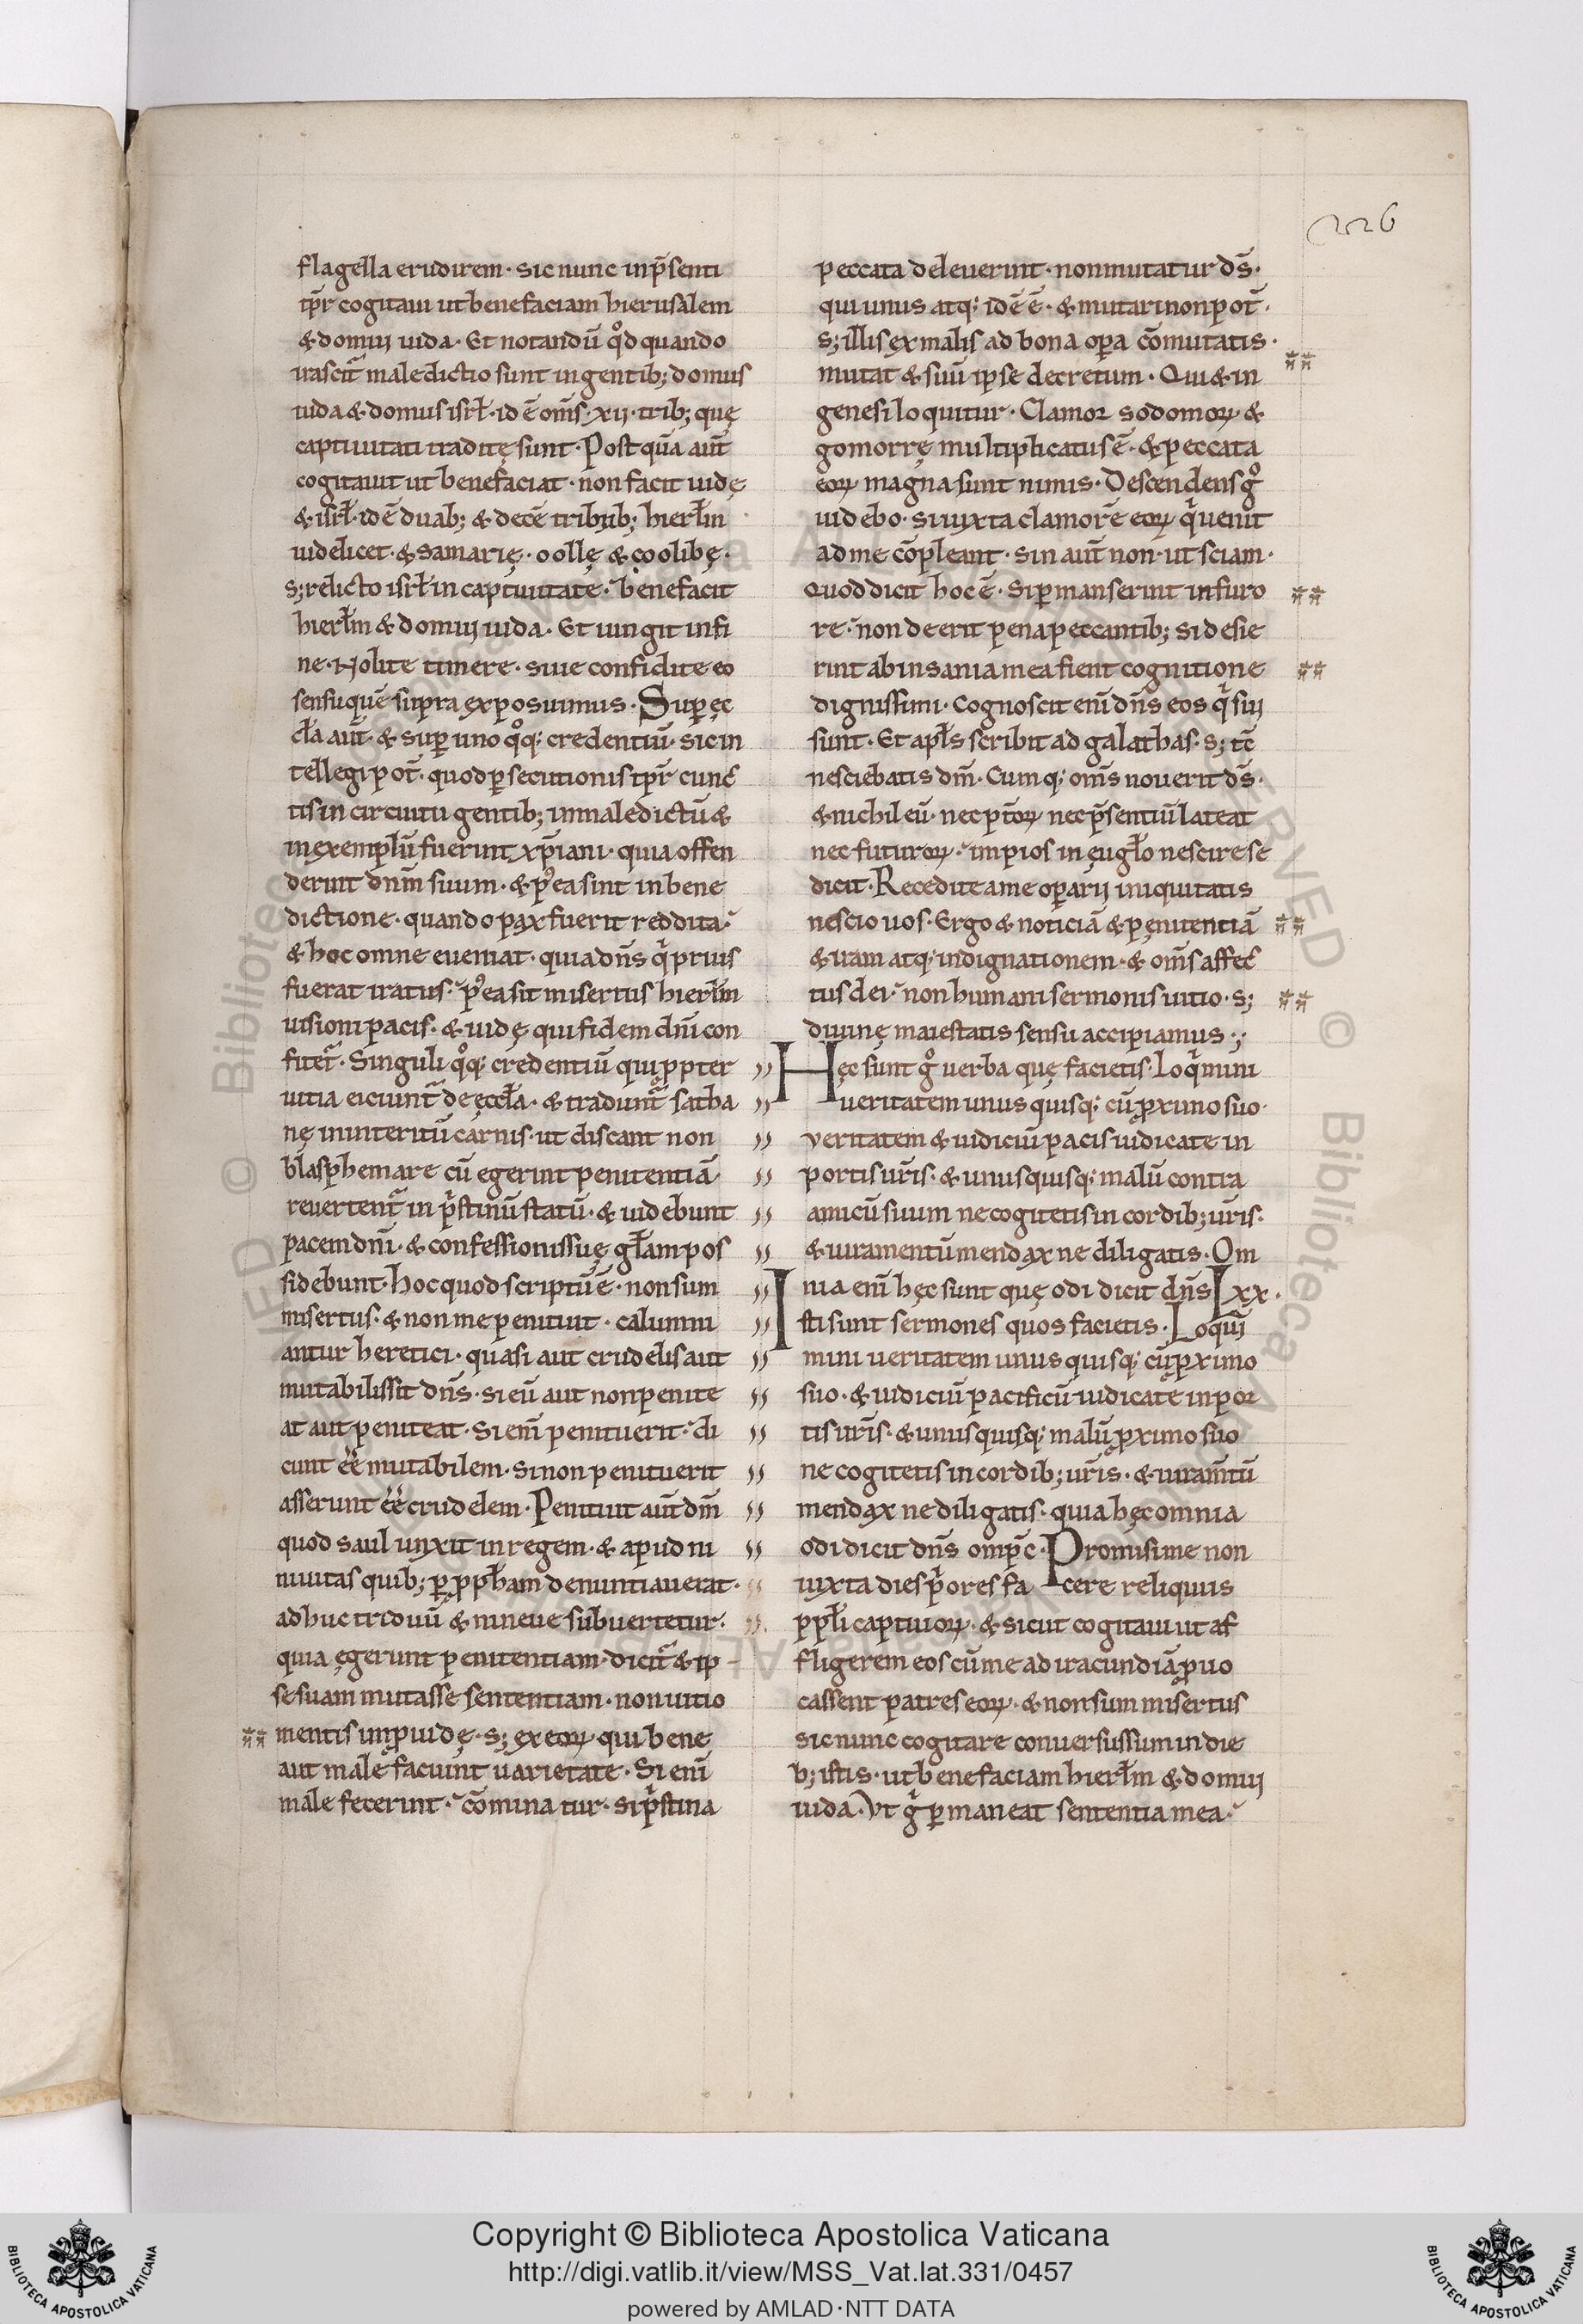 226
flagella erudirem· sic nunc in p̄senti
tp̄r cogitaui ut benefaciam hierusalem
& domui iuda· Et notandū qd̊ quando
irascit᷑ maledictio sunt in gentib; domus
iuda & domus isrł· id ē om̄s· xii· trib; quę
captiuitati traditę sunt· Postquā aut̄
cogitauit ut benefaciat· non facit iudę
& isrł· id ē duab; & decē tribub; hierłm
uidelicet· & samarię· oollę & oolibę·
s; relicto isrł in captiuitate· benefacit
hierłm & domui iuda· Et iungit in fi
ne· Nolite timere· siue confidite eo
sensu quē supra exposuimus· Sup̱ ęc
cła aut̄· & sup̱ uno qͦq; credentiū· sic in
tellegi pot̄· quod p̱secutionis tp̄r cunc̄
tis in circuitu gentib; in maledictū &
in exemplū fuerint xp̄iani· quia offen
derint dn̄m suum· & pͦea sint in bene
dictione· quando pax fuerit reddita·
& hoc omne eueniat· quia dn̄s qͥ prius
fuerat iratus· pͦea sit misertus hierłm
uisioni pacis· & iudę qui fidem dn̄i con
fitet᷑· Singuli qͦq; credentiū qui ꝓpter
uitia eiciunt᷑ de ęccła· & tradunt᷑ satha
nę in interitū carnis· ut discant non
blasphemare cū egerint penitentiā·
reuertent᷑ in pͥstinū statū· & uidebunt
pacem dn̄i· & confessionis suę głam pos
sidebunt· Hoc quod scriptū ē· non sum
misertus· & non me penituit· calumni
antur heretici· quasi aut crudelis aut
mutabilis sit dn̄s· si eū aut non penite
at aut peniteat· Si eni᷑ penituerit· di
cunt ee̅ mutabilem· si non penituerit
asserunt ee̅ crudelem· Penituit aut̄ dm̄
quod saul unxit in regem· & apud ni
niuitas quib; p̱ ꝓpham denuntiauerat·
adhuc triduū & nineue subuertetur·
quia ęgerunt penitentiam· dicit᷑ & ip
se suam mutasse sententiam· non uitio
mentis imꝓuidę· s; ex eoꝝ qui bene
aut male faciunt uarietate· Si eni᷑
male fecerint· cōminatur· si pͥstina
peccata deleuerint· non mutatur ds̄·
qui unus atq; idē ē· & mutari non pot̄·
s; illis ex malis ad bona op̱a cōmutatis·
mutat & suū ipse decretum· Qui & in
genesi loquitur· Clamor sodomoꝝ &
gomorrę multiplicatus ē· & peccata
eoꝝ magna sunt nimis· Descendens gͦ
uidebo· si iuxta clamorē eoꝝ qͥ uenit
ad me cōpleant· sin aut̄ non· ut sciam·
Quod dicit hoc ē· Si p̱manserint in furo
re· non deerit pena peccantib; si desie
rint ab insania mea fient cognitione
dignissimi· Cognoscit eni᷑ dn̄s eos qͥ sui
sunt· Et apłs scribit ad galathas· s; tc̄
nesciebatis dm̄· Cumq; om̄s nouerit ds̄·
& nichil eū· nec p̄toꝝ nec p̄sentiū lateat
nec futuroꝝ· impios in ęugło nescire se
dicit· Recedite a me op̱arii iniquitatis
nescio uos· Ergo & noticiā & pęnitentiā
& iram atq; indignationem· & om̄s affec̄
tus dei· non humani sermonis uitio· s;
diuinę maiestatis sensu accipiamus·;·
Hęc sunt gͦ uerba quę facietis· Loqͥmini
ueritatem unus quisq; cū ꝓximo suo·
veritatem & iudiciū pacis iudicate in
portis ur̄is· & unus quisq; malū contra
amicū suum ne cogitetis in cordib; ur̄is·
& iuramentū mendax ne diligatis· Om
nia eni᷑ hęc sunt quę odi dicit dn̄s Lxx·
Isti sunt sermones quos facietis· Loqui᷑
mini ueritatem unus quisq; cū ꝓximo
suo· & iudiciū pacificū iudicate in por
tis ur̄is· & unus quisq; malū ꝓximo suo
ne cogitetis in cordib; ur̄is· & iuram̄tū
mendax ne diligatis· quia hęc omnia
odi dicit dn̄s omp̄c· Promisi me non
iuxta dies pͥores facere reliquiis
ppłi captiuoꝝ· & sicut cogitaui ut af
fligerem eos cū me ad iracundiā ꝓuo
cassent patres eoꝝ· & non sum misertus
sic nunc cogitare conuersus sum in die
b; istis· ut benefaciam hierłm & domui
iuda· Vt gͥ p̱maneat sententia mea·
Copyright © Biblioteca Apostolica Vaticana
http://digi.vatlib.it/view/MSS_Vat.lat.331/0457
powered by AMLAD·NTT DATA
BIBLIOTECA APOSTOLICA VATICANA
BIBLIOTECA APOSTOLICA VATICANA